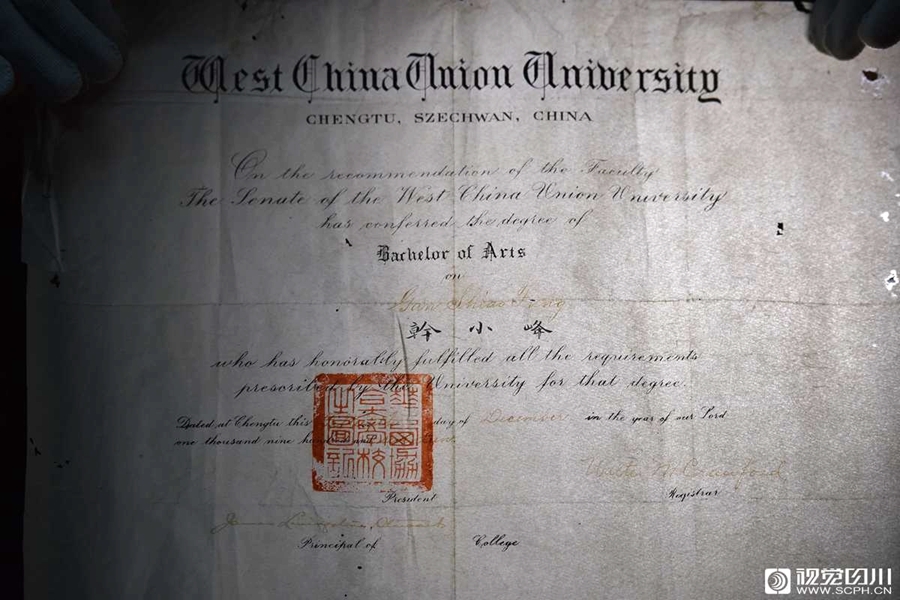 West China Union University
CHENGTU, SZECHWAN, CHINA
On the recommendation of the Faculty
The Senate of the West China Union University
has conferred the degree of
Bachelor of Arts
on
幹小峰
who has honorably fulfilled all the requirements
prescribed by the University for that degree.
Dated at Chengtu this day of December in the year of our Lord
one thousand nine
President
Registrar
Principal of College
视觉四川
WWW.SCPH.CN